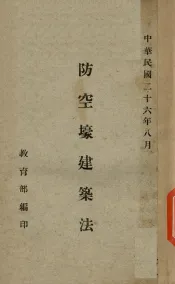 中華民國二十六年八月
防空壕建築法
教育部編印